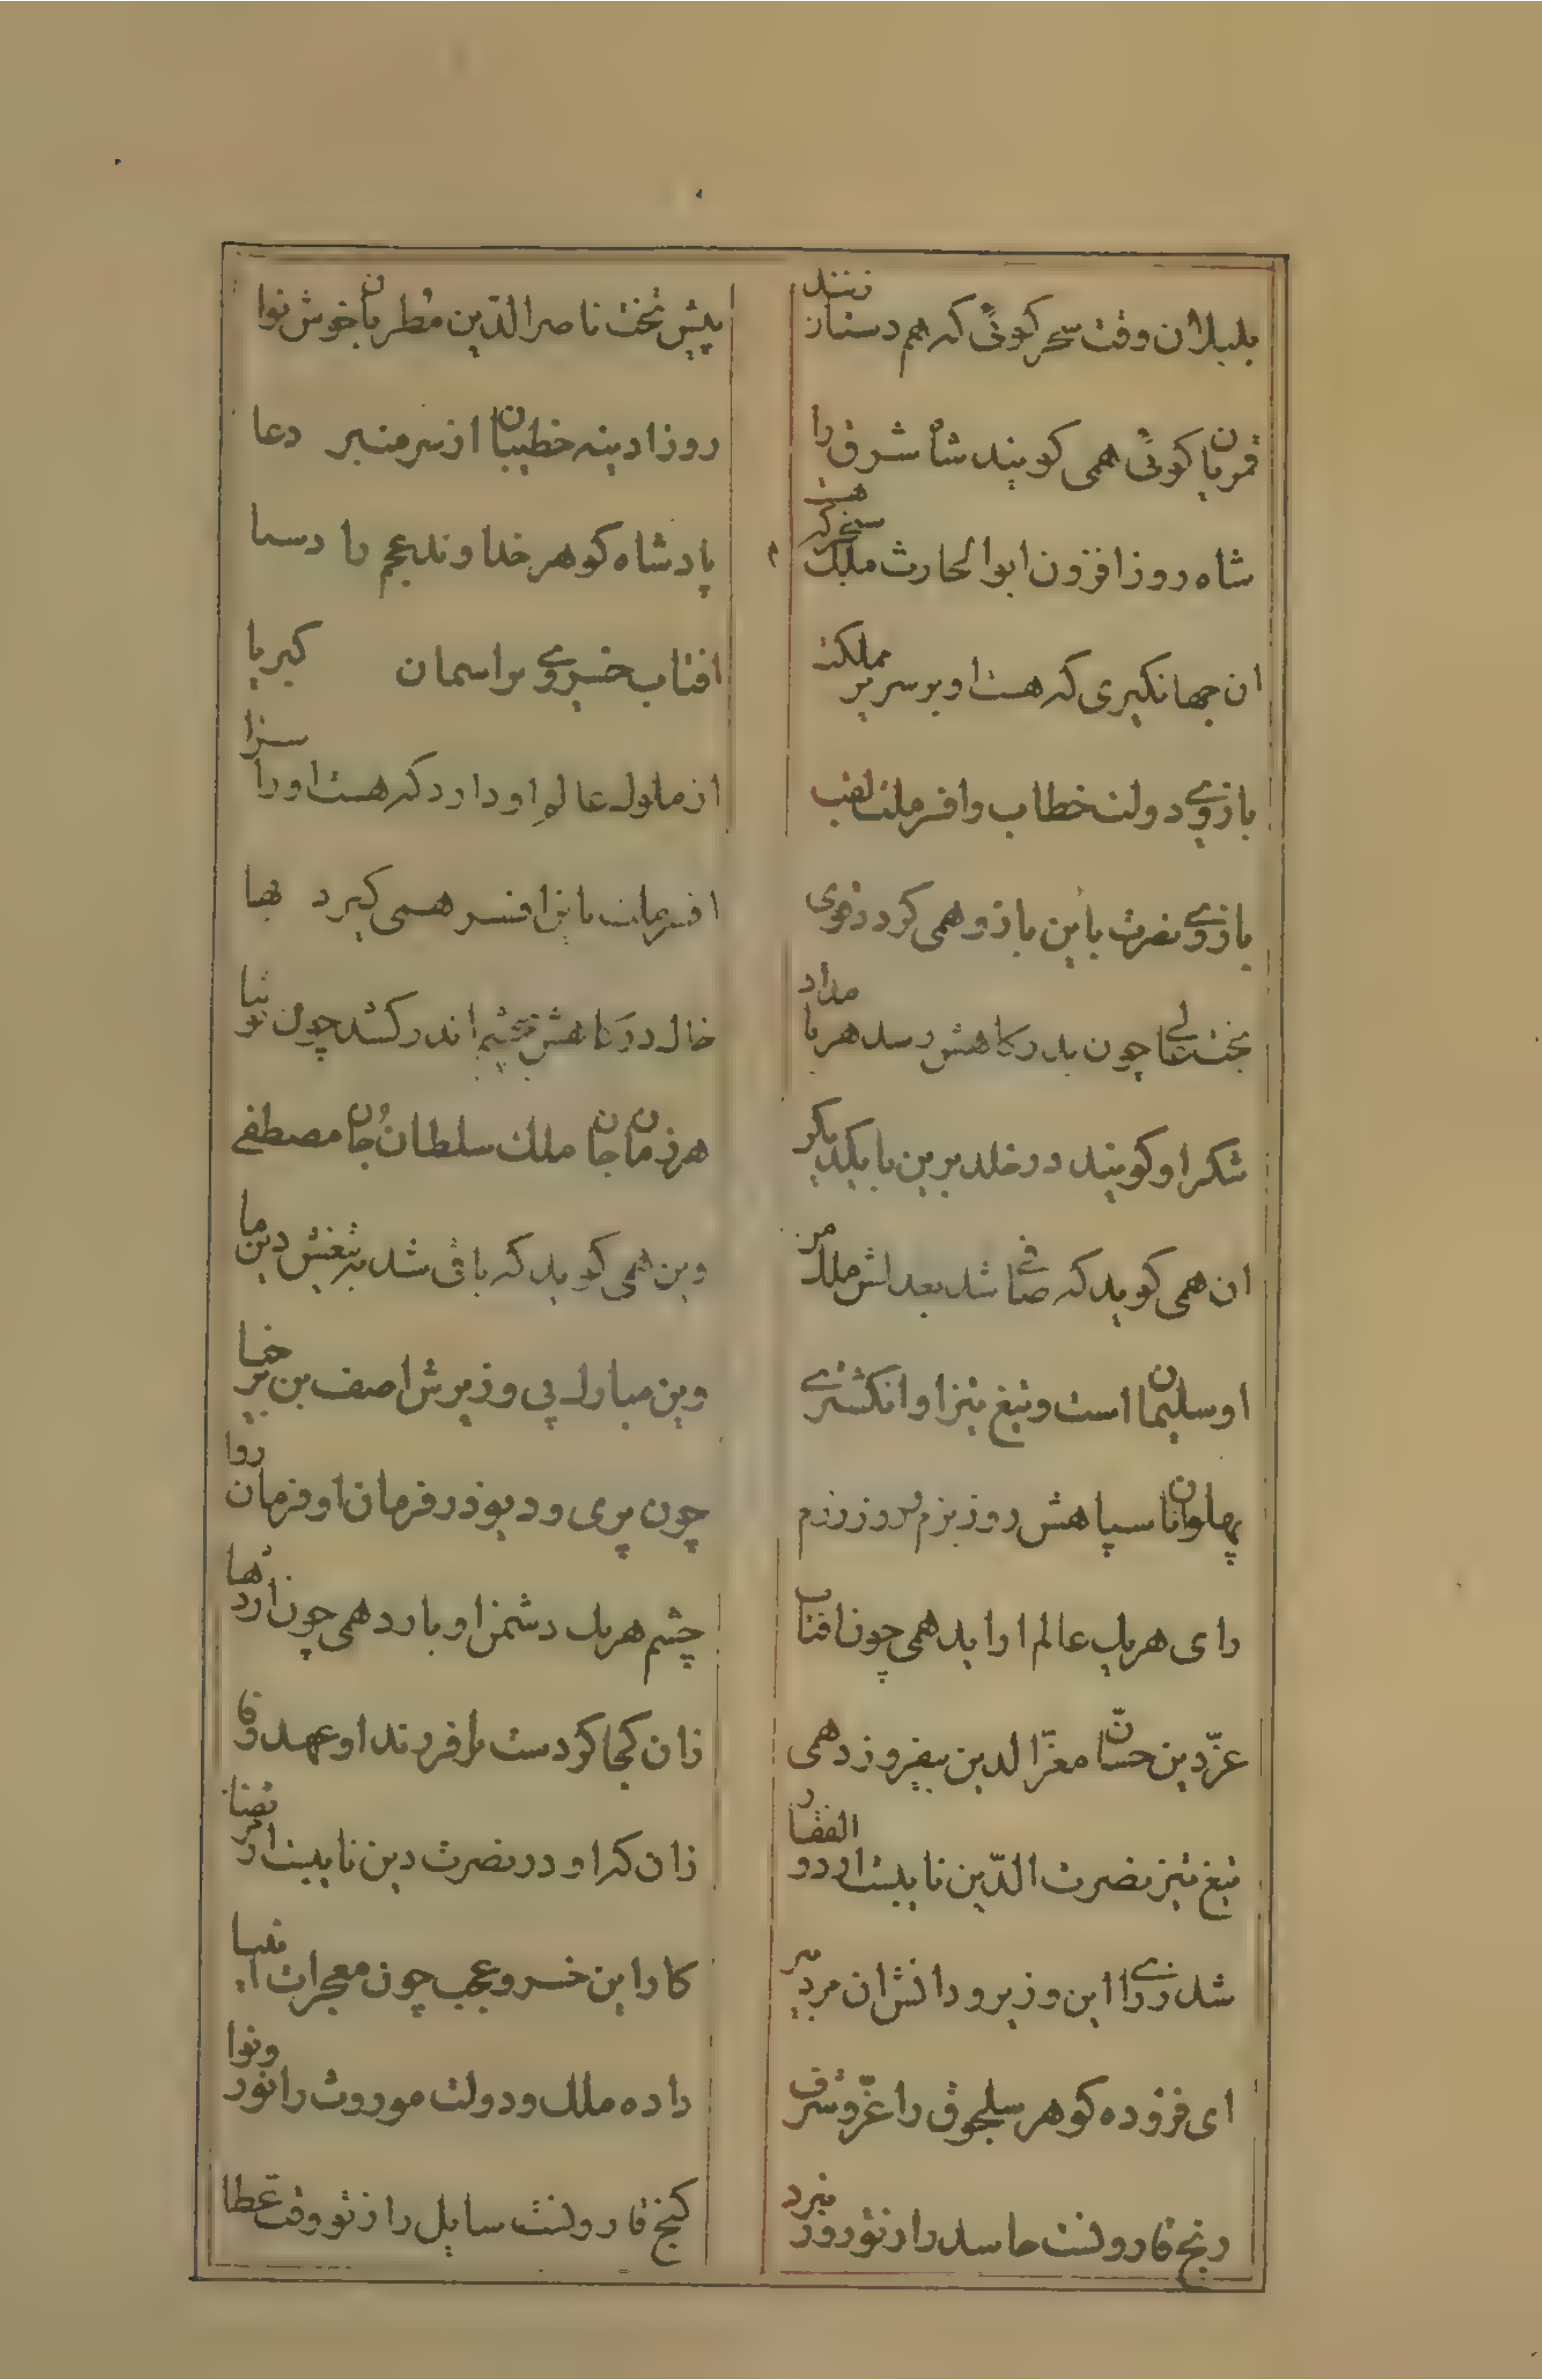 بلبلان وقت سحر کوئی که هم دستان زنند
پیش تخت ناصر الدین مطربان خوش نوا
قمریان کوئی همی کویند شاه شرق را
روز ادینه خطیبان از سر منبر دعا
شاه روز افزون ابو الحارث ملک سنجر که هست
پادشاه کوهر خداوند عجم
ان جهانکیری که هست او بر سریر مملکت
افتاب خسروی بر اسمان کبریا
بازوی دولت خطاب و افسر ملت لقب
از ملوک عالم او دارد که هست او را سزا
بازوی نصرت باین بازو همی کرد قوی
افسر ملت باین افسر همی کیرد بها
بخت عالی چون بدرکاهش رسد هر بامداد
خاک درکاهش بچشم اندر کشد چون توتیا
شکر او کویند در خلد برین با یکدیکر
هر زمان جان ملک سلطان و جان مصطفی
ان همی کوید که صافی شد بعدلش ملک من
وین همی کوید که باقی شد به تیغش دین ما
او سلیمان است و تیغ تیز او انکشتری
وین مبارک پی وزیرش اصف بن برخیا
پهلوانان سپاهش روز بزم و روز رزم
چون پری و دیو در فرمان او فرمان روا
رای هر یک عالم ارا ید همی چون افتاب
چشم هر یک دشمن او بارد همی چون اژدها
عز دین حسان معز الدین بیفروزد همی
زان کجا کردست با فرزند او عهد وفا
تیغ تیز نصرت الدین نایبست از ذو الفقار
زان که او در نصرت دین نایبست از مرتضا
شد ز رای این وزیر و دانش ان مرد پیر
کار این خسرو عجب چون معجزات انبیا
ای فزوده کوهر سلجوق را عز و شرف
داده ملک و دولت موروث را نور و نوا
رنج قارونست حاسد را ز تو روز نبرد
کنج قارونست سایل را ز تو وقت عطا